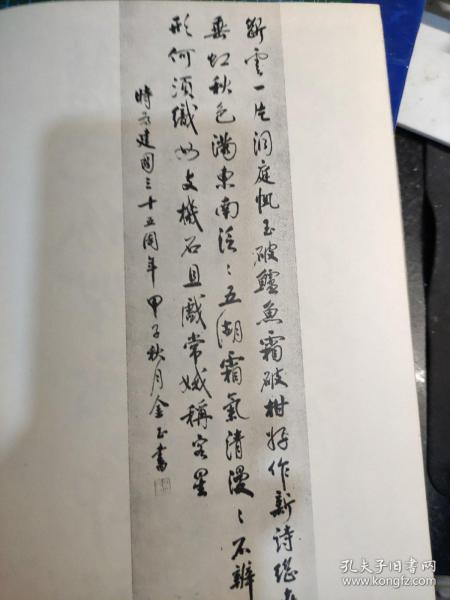 斷雲一片洞庭帆玉破鱸魚霜破柑好作新詩繼
垂虹秋色滿東南泛〻五湖霜氣清漫〻不辨
形何須織女支機石且戲常娥稱客星
時為建國三十五周年甲子秋月金玉書
孔夫子旧书网